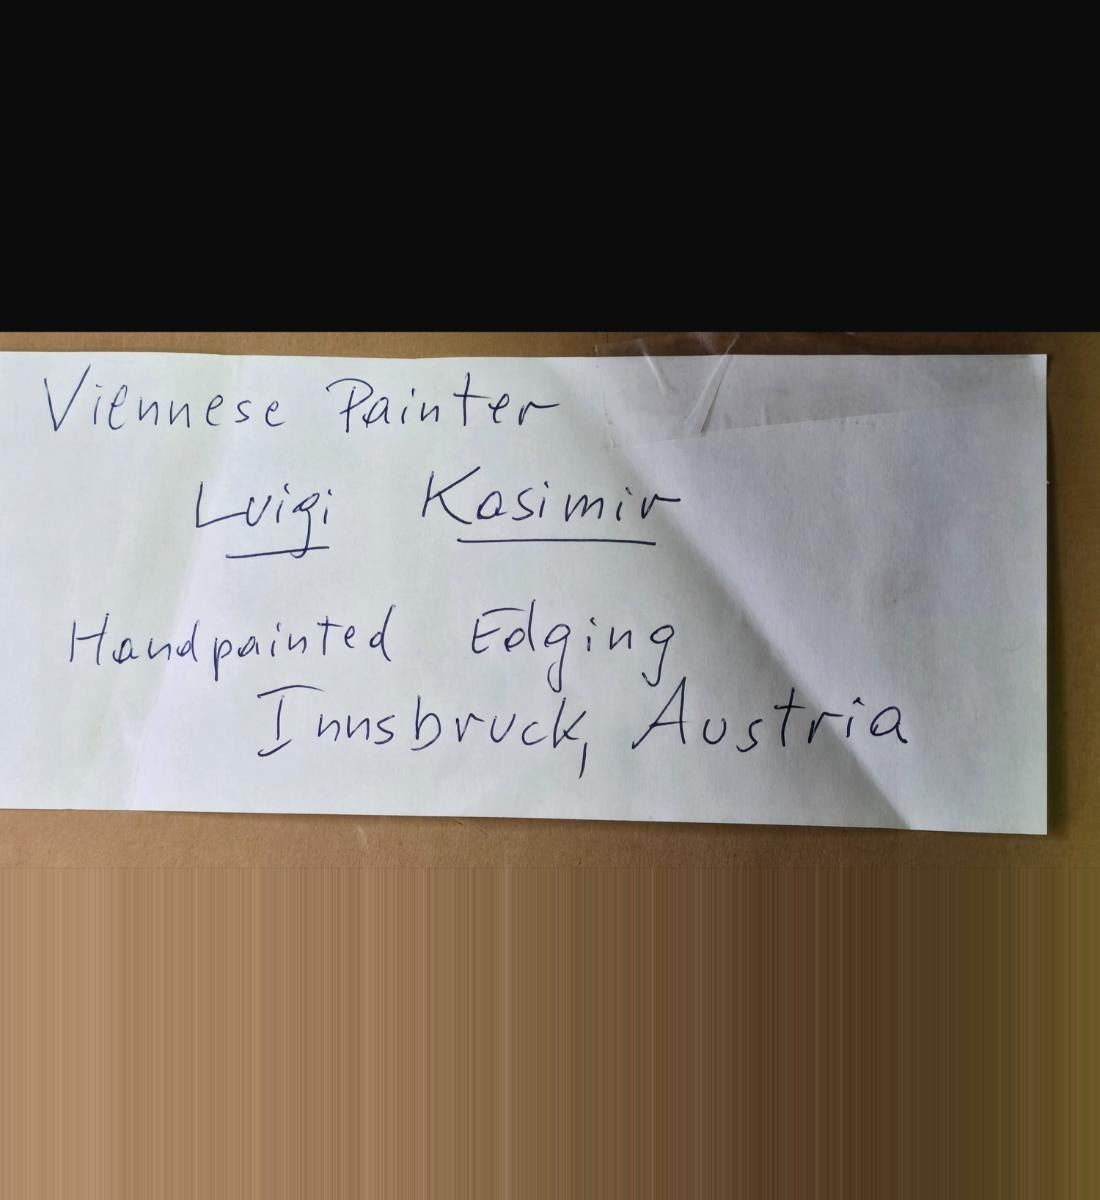 Viennese Painter
Luigi Kasimir
Handpainted Edging
Innsbruck, Austria